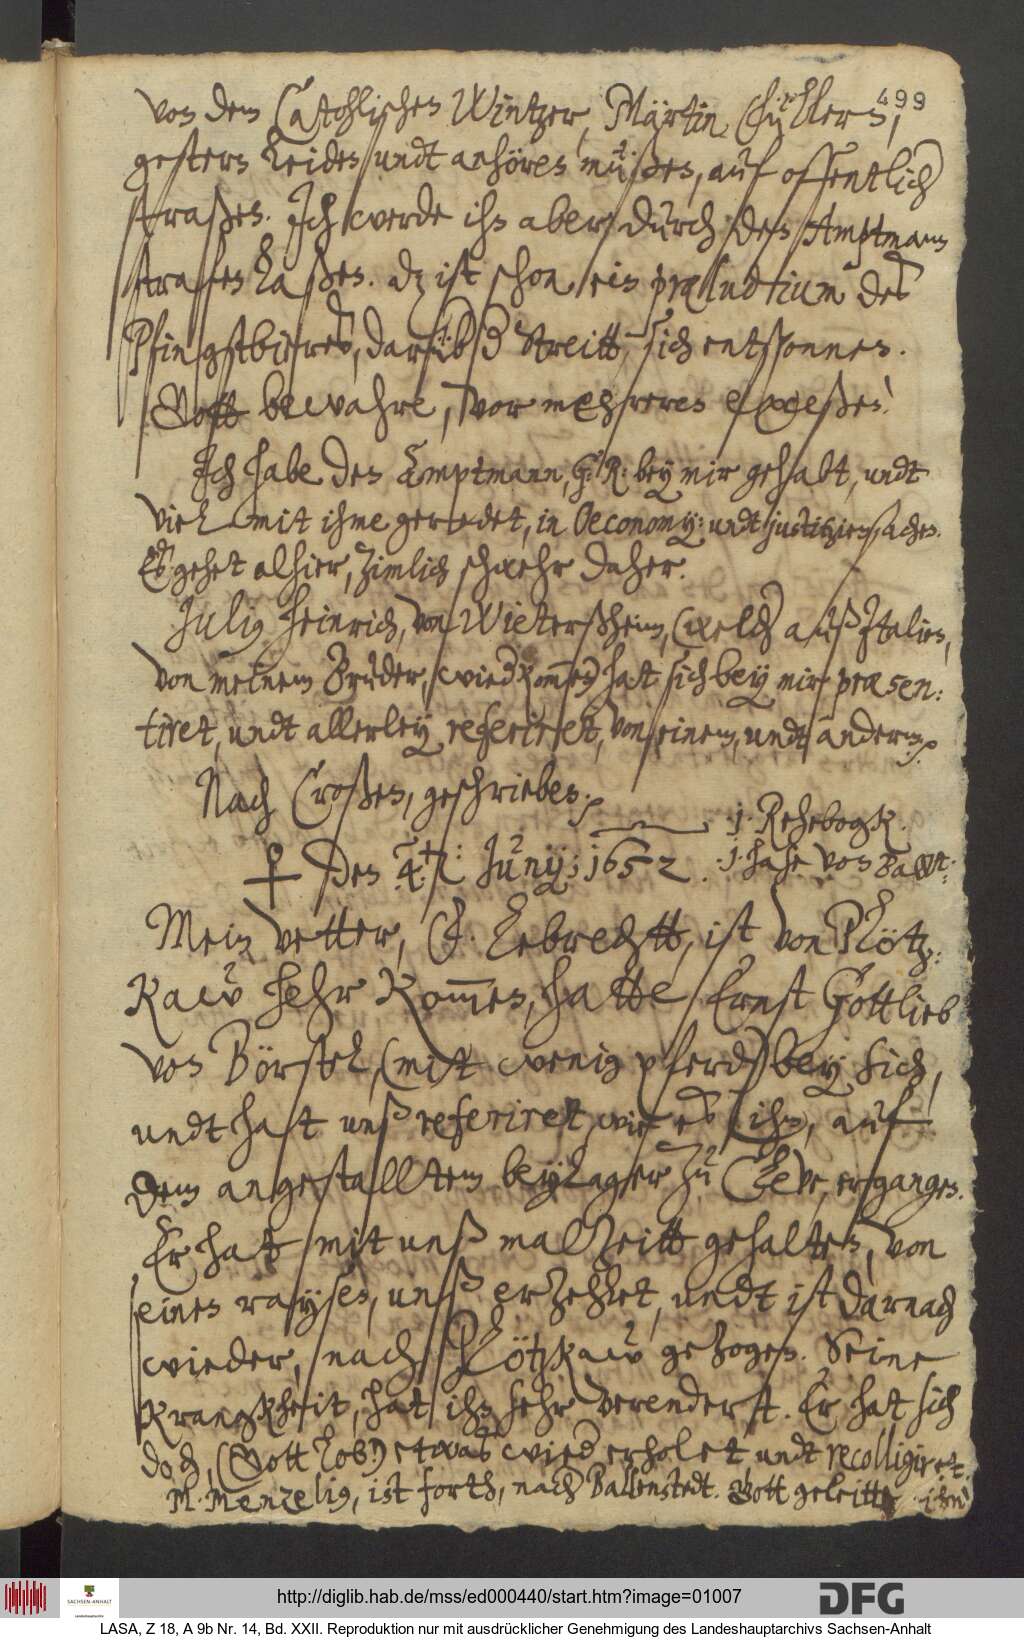 499
von dem Catohlischen Wintzer, Märtin, Müllern,
gestern leiden, undt anhören müßen, auf offentlich
straßen. Ich werde ihn aber, durch den Amptmann
strafen laßen. dz ist schon ein præludtium des
Pfingstbieres, darüb d Streitt, sich entsponnen.
Gott bewahre, vor mehreren excessen!
Ich habe den Amptmann, G: R: bey mir gehabt, undt
viel mit ihme geredet, in Oeconomy: undt justitziensachen.
Es gehet alhier, zimlich schwehr daher.
Julig Heinrich, von Wietersheim, (welch auß Jtalien,
von meinem Bruder, wied kommen) hat sich bey mir præsen:
tiret, undt allerley referiret, von einem, undt anderm.
Nach Croßen, geschrieben.
1. Rehebogk.
den 4: Junij: 1652. 1. hase von Ballst:
Mein vetter, F. Lebrechtt, ist von Plötz:
kaw hehr kommen, hatte Ernst Gottlieb
von Börstel, (mit wenig pferd) bey sich,
undt hat unß referiret, wie es ihm, auf
dem angestalltem beylager zu Cleve, erganges.
Er hat mit unß malzeitt gehalten, von
seinen raysen, unß erzehlet, undt ist darnach
wieder, nach Plötzkaw gezogen. Seine
krangkheit, hat ihn sehr verendert. Er hat sich
doch, (Gott lob!) etwas wied erholet undt recolligiret.
M. Menzelig, ist forth, nach Ballenstedt. Gott geleitte ihn!
http://diglib.hab.de/mss/ed000440/start.htm?image=01007
SACHSEN-ANHALT
DFG
LASA, Z 18, A 9b Nr. 14, Bd. XXII. Reproduktion nur mit ausdrücklicher Genehmigung des Landeshauptarchivs Sachsen-Anhalt